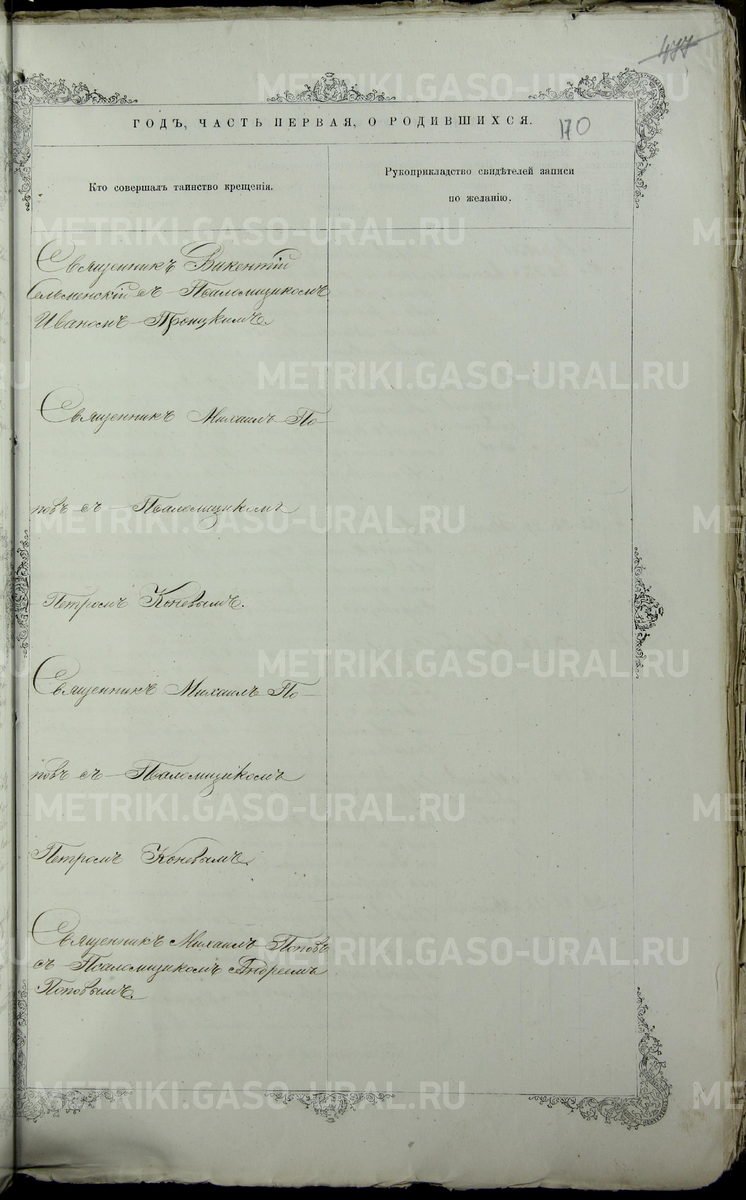 477
ГОДЪ, ЧАСТЬ ПЕРВАЯ, О РОДИВШИХСЯ.
170
Кто совершалъ таинство крещенія.
Рукоприкладство свидѣтелей записи
по желанію.
Священникъ Викентій
съ Псаломщикомъ
Иваномъ Троицкимъ.
Священникъ Михаилъ По-
повъ съ Псаломщикомъ
Петромъ Коневымъ.
Священникъ Михаилъ По-
повъ съ Псаломщикомъ
Петромъ Коневымъ.
Священникъ Михаилъ Поповъ
съ Псаломщикомъ Андреемъ
Поповымъ.
METRIKI.GASO-URAL.RU